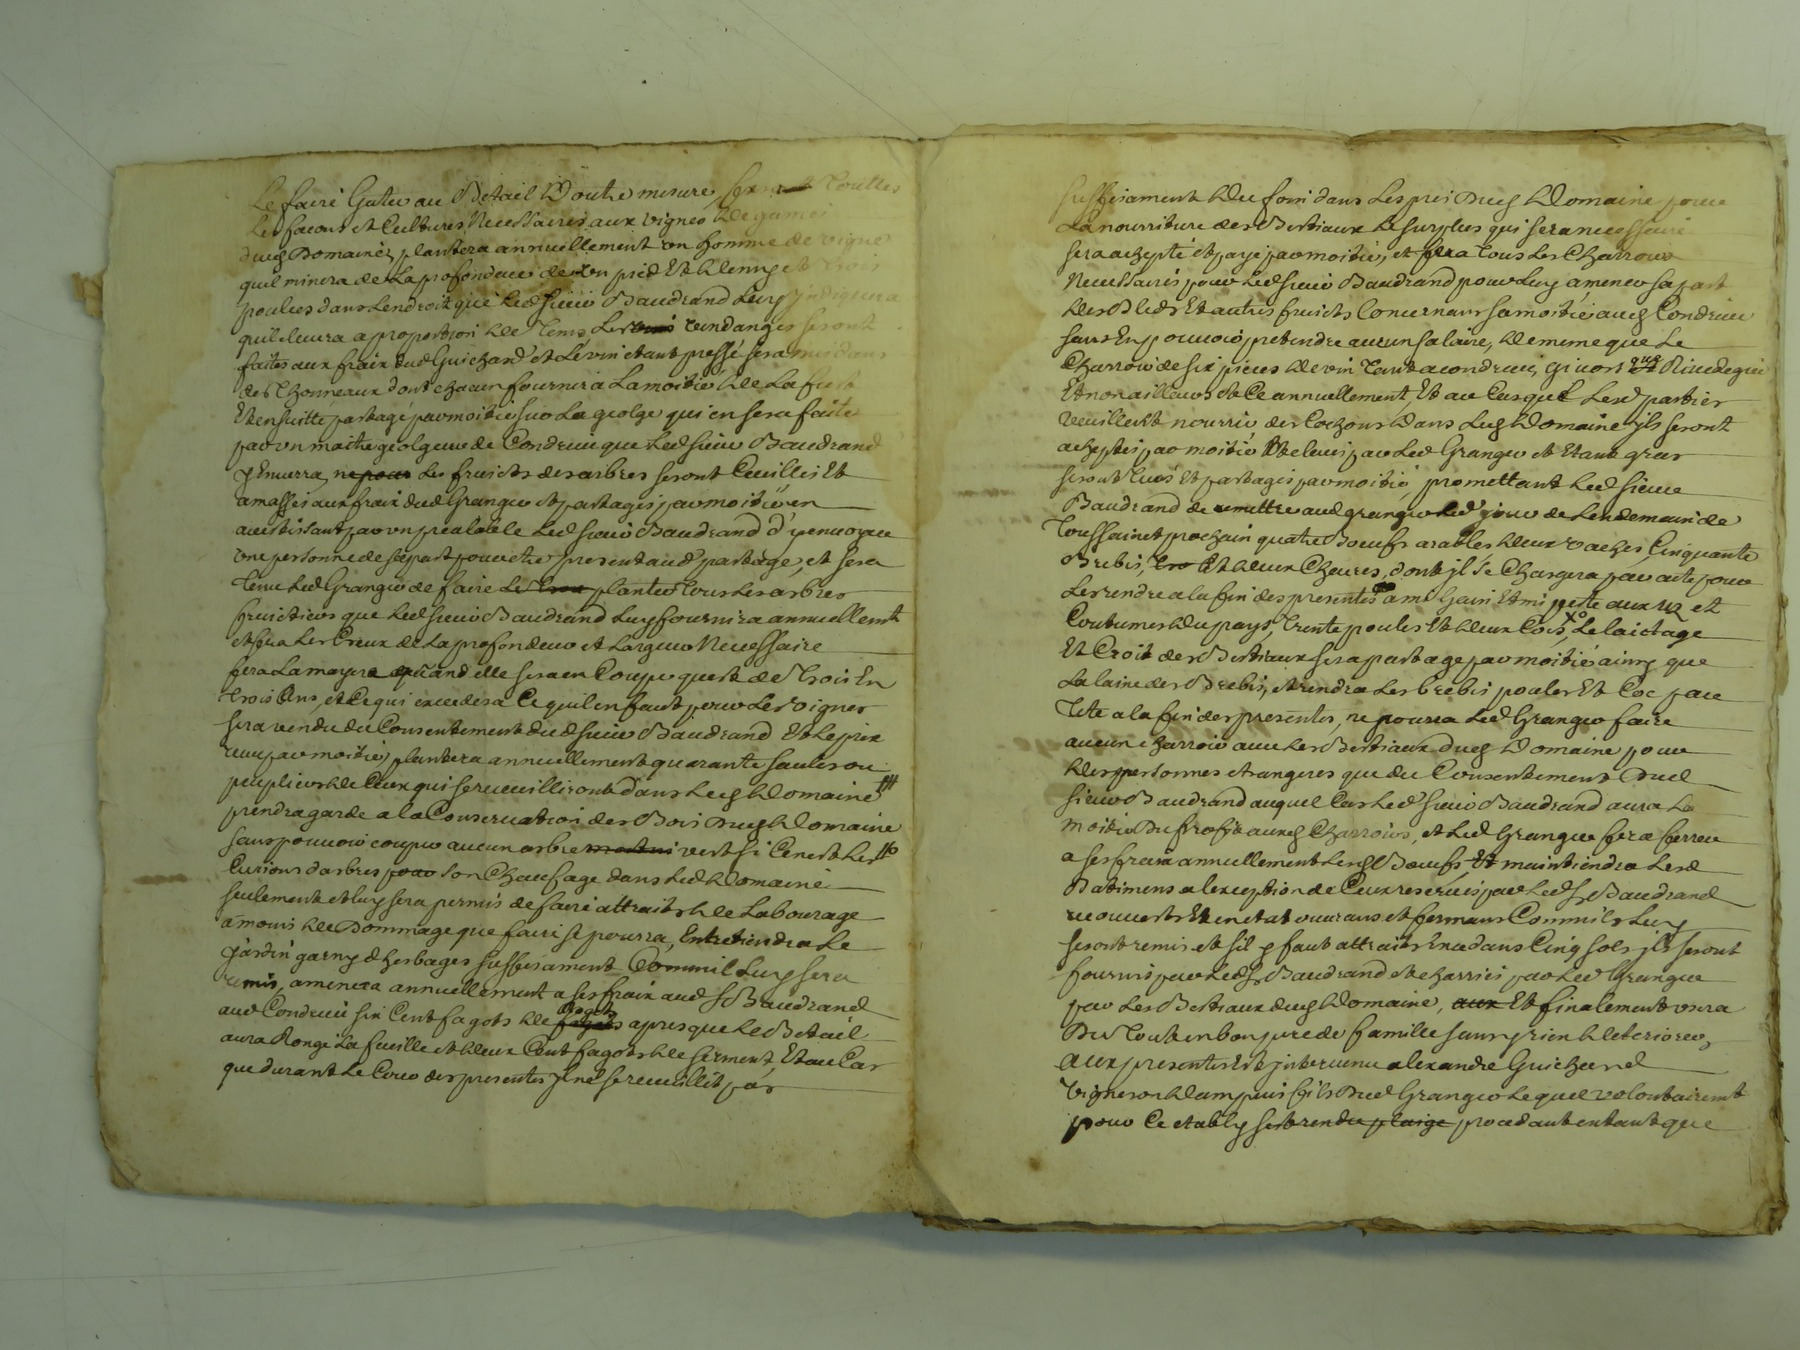 Le faire Gater au Betail Doutre mesure, fera Touttes
Les facons et Cultures Necessaires aux vignes
dud Domaine, plantera annuellement un homme de vigne
quil minera de La profondeur de un pied Et demy et trois
poulces dans Lendroit que led sieur Baudrand Luy Jndiquera
quil eleuera a proportion de Tems Les vendanges seront
faites aux fraix dud Guichard et Le vin etant pressé sera mis dans
des Thonneaux dont chacun fournira La moitié de La fuste
Et ensuitte partagé par moitié sur La geolge qui en sera faite
par un maitre geolgeur de Condrieu que Led sieur Baudrand
y Enuerra, ne pour Les fruicts des arbres seront Cueillis Et
amassés aux fraix dud Granger et partagés par moitié en
auertissant par un prealable Led sieur Baudrand d'y enuoyer
une personne de sa part pour etre present aud partage, et sera
Tenu Led Granger de faire Le Creux planter Tous Les arbres
fruictiers que Led sieur Baudrand Luy fournira annuellemt
et fera Les Creux de La profondeur et Largeur Necessaire
fera La quand elle sera en Coupe quest de Trois En
Trois Ans, et Ce qui excedera Ce quil en faut pour Les Vignes
sera vendu du Consentement dud sieur Baudrand Et Le prix
par moitié, plantera annuellement quarante saules ou
peupliers de Ceux qui se recueilliront dans Led Domaine
prendra garde a la Conseruation des Bois Dud Domaine
sans pouuoir couper aucun arbre vert si Ce nest Les
Curions darbres pour son Chaufage dans Led Domaine
seulement et luy sera permis de faire attraits de Labourage
a moins de Dommage que faire se pourra, Entretiendra Le
jardin garny dherbages suffisament Comm'il Luy sera
remis, amenera annuellement a ses fraix aud S Baudrand
aud Condrieu six Cent fagots de fagots apres que Le Betail
aura Rongé La feuille et deux Cent fagots de serment, Et au Cas
que durant Le Cour des presentes Jl ne se recueillit pas
suffisament du foin dans Les prés Dud Domaine pour
La nourriture des Bestiaux Le surplus qui sera necessaire
sera achepté et payé par moitié, et fera Tous Les Charrois
Necessaires pour Led sieur Baudrand pour Luy amener sa part
des Bleds Et autres fruicts Concernant sa moitié aud Condrieu
sans En pouuoir pretendre aucun salaire, de meme que Le
Charroi de six pieces de vin Tant a condrieu, giuors que Riuedegier
Et non ailleurs et Ce annuellement, Et au Cas que Lesd parties
Veuillent nourrir des Cochons Dans Led Domaine jls seront
acheptés par moitié Et eleués par Led Granger et Etant gras
seront Tués Et partagés par moitié, promettant Led sieur
Baudrand de remettre aud granger Led jour de Lendemain de
Toussainct prochain quatre Boeufs arables deux vaches, Cinquante
Brebis, Tro Et deux Cheures, dont jl se Chargera par acte pour
Les rendre a la fin des presentes a mi Gain Et mi perte aux uz et
Coutumes du pays, Trente poules Et deux Cocs, Le laictage
Et Croit des Bestiaux sera partagé par moitié ainsy que
La laine des Brebis, et rendra Les brebis poules Et Coc par
Tete a la fin des presentes, ne pourra Led Granger faire
aucun charroir auec Les Bestiaux dud Domaine pour
des personnes etrangeres que du Consentement Dud
sieur Baudrand auquel Cas Led sieur Baudrand aura La
moitié Du profit auxd Charrois, et Led Granger fera ferrer
a ses fraix annuellement Lesd Boeufs, Et maintiendra Lesd
Batimens a lexception de Ceux reserués par Led S Baudrand
recouuerts Et en etat ouurans et fermans Comm'ils Luy
seront remis et s'il y faut attraits Excedans Cinq sols jls seront
fournis par Led S Baudrand et charriés par Led Granger
par Les Bestiaux dud Domaine, aux Et finalement usera
Du Tout en bon pere de famille sans y rien deteriorer,
Aux presentes Est jnteruenu alexandre Guichard
Vigneron dampuis fils Dud Granger Lequel volontairemt
pour Ce etably sest rendu plaige procedant entant que